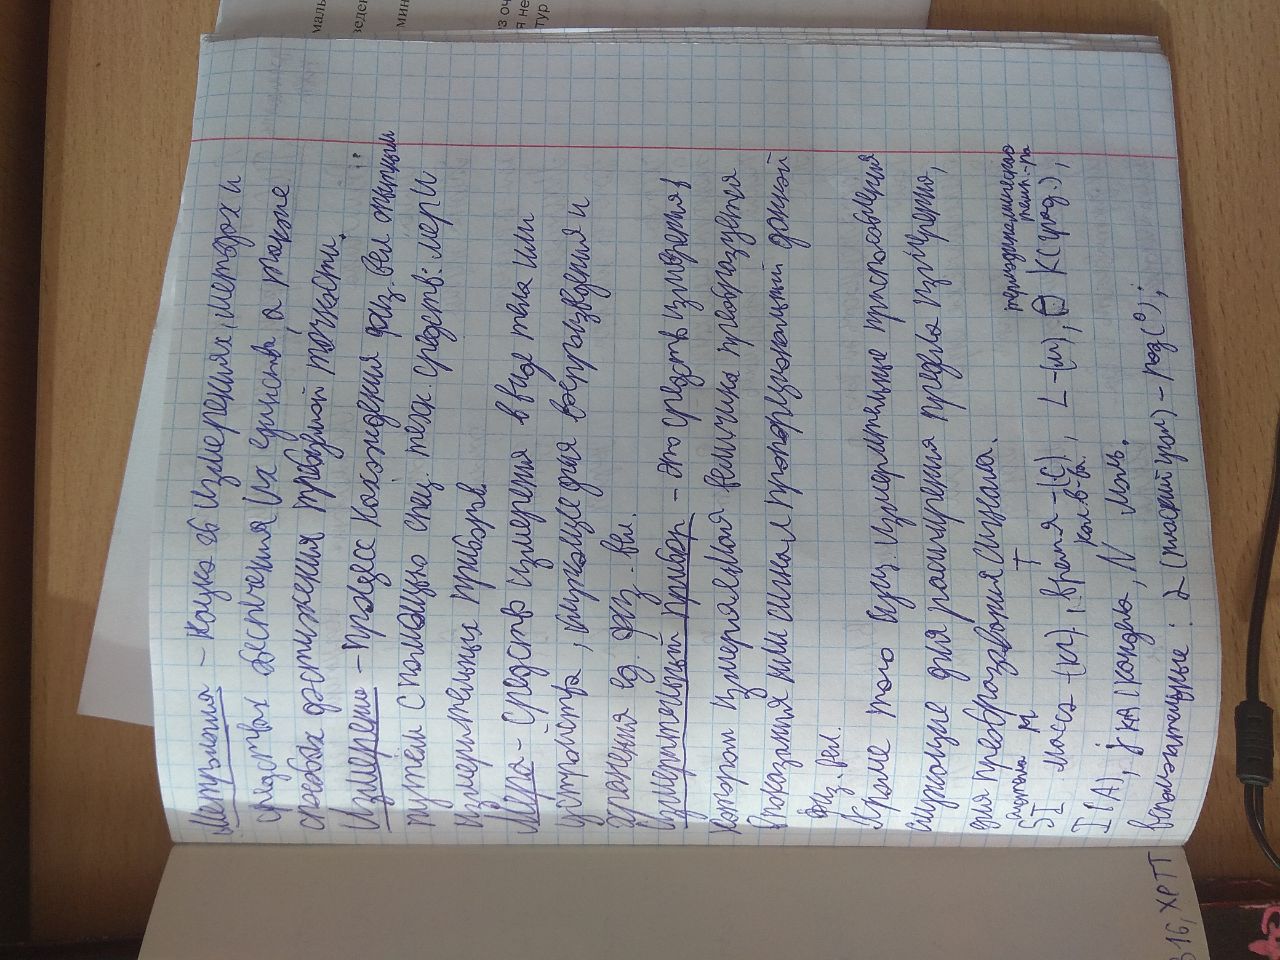 маль
ведени
мини
из оч
я не
тур
Метрология – наука об измерениях, методах и
средствах обеспечения их единства, а также
способах достижения требуемой точности.
Измерение – процесс нахождения физ. вел опытным
путём с помощью спец. техн. средств: мер и
измерительных приборов.
Мера – средство измерения в виде тела или
устройства, служащее для воспроизведения и
хранения ед. физ. вел.
Измерительный прибор – это средство измерения в
котором измеряемая величина преобразуется
в показания или сигнал пропорциональный данной
физ. вел.
Кроме того сущ. измерительные приспособления
служащие для расширения предела измерения,
для преобразования сигнала.
система M T термодинамическая
SI масса – (кг), время – (с), L – (м), Θ K (град.), темп.-ра
кол. в-ва
I (A), j кд (кандела, N моль.
вспомогательные: α (плоский угол) – рад (°);
В16, ХРТТ